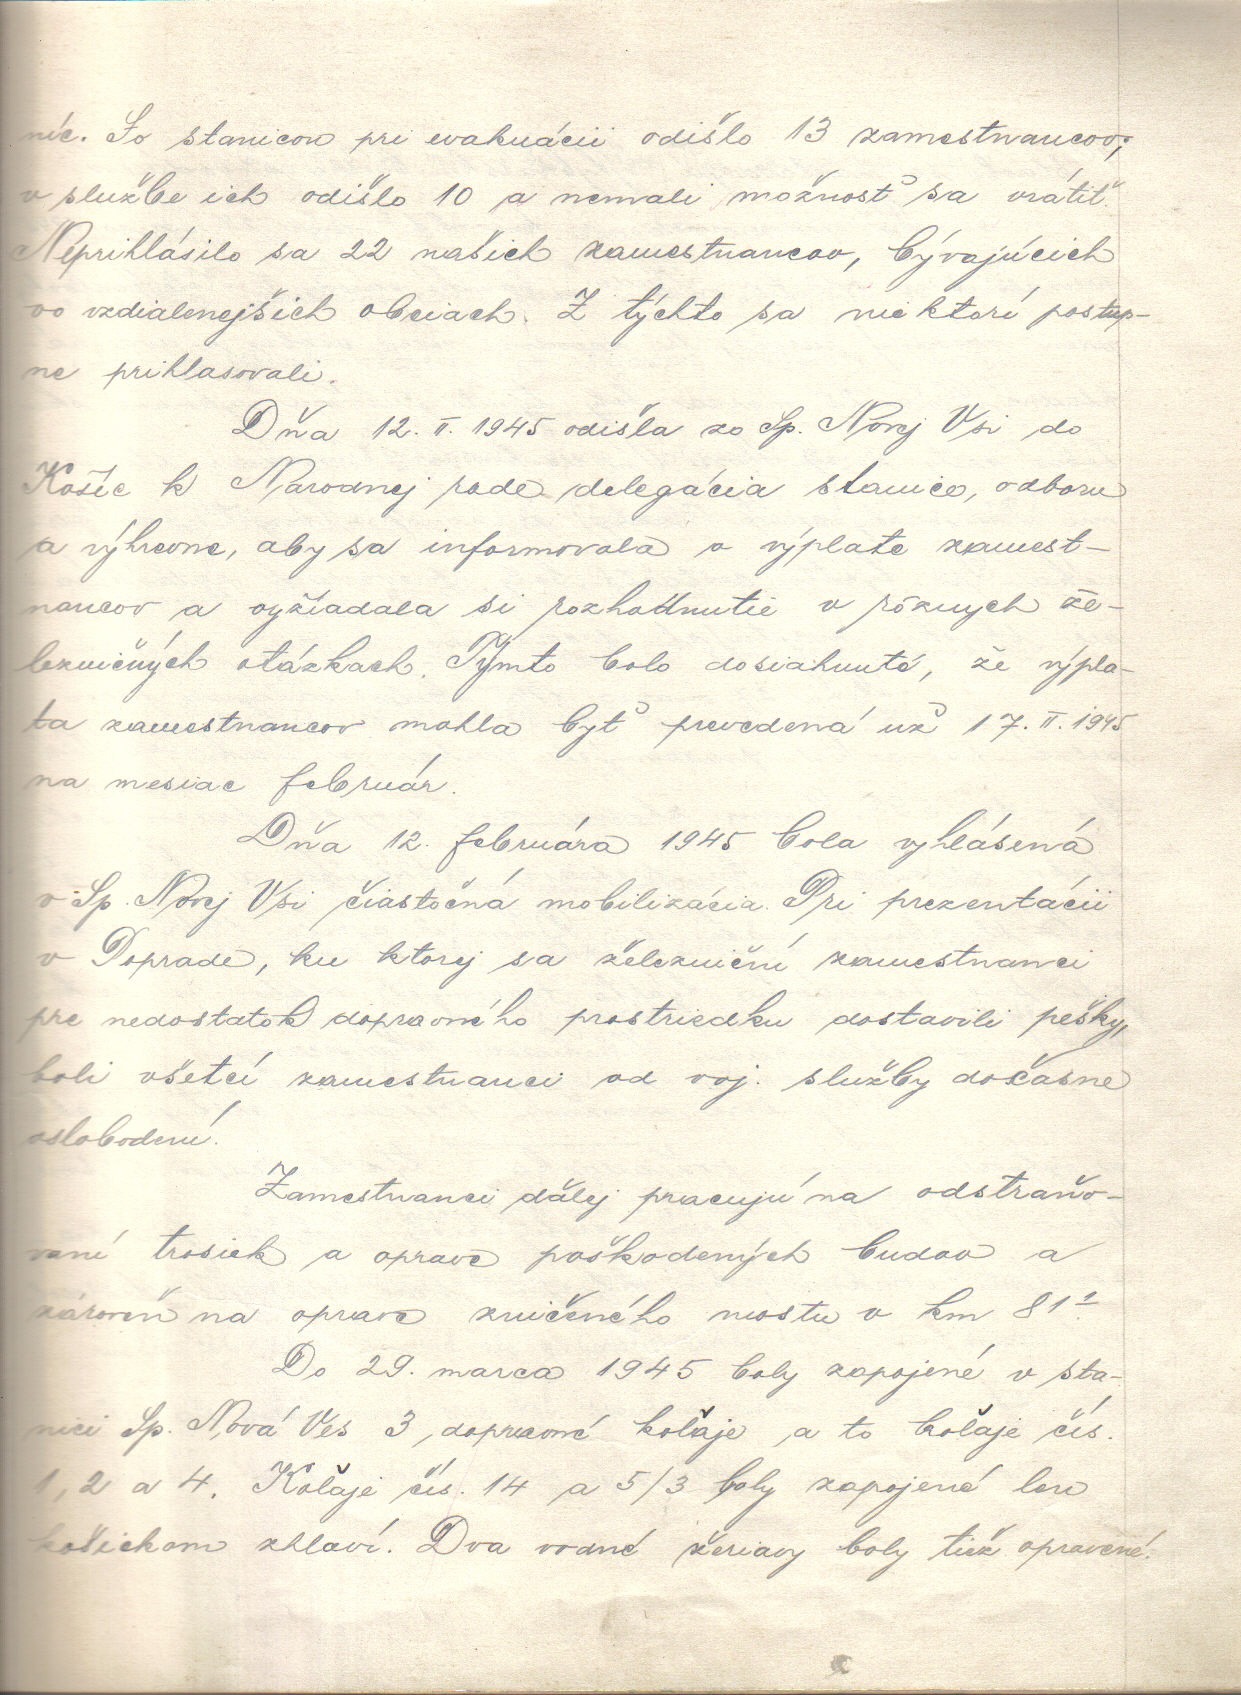 níc. So stanicou pri evakuácii odišlo 13 zamestnancov;
v službe ich odišlo 10 a nemali možnosť sa vrátiť.
Neprihlásilo sa 22 našich zamestnancov, bývajúcich
vo vzdialenejších obciach. Z týchto sa niektorí postup-
ne prihlasovali.
Dňa 12. II. 1945 odišla zo Sp. Novej Vsi do
Košíc k Národnej rade delegácia stanice, odboru
a výhrevne, aby sa informovala o výplate zamest-
nancov a vyžiadala si rozhodnutie v rôznych že-
lezničných otázkach. Týmto bolo dosiahnuté, že výpla-
ta zamestnancov mohla byť prevedená už 17. II. 1945
na mesiac február.
Dňa 12. februára 1945 bola vyhlásená
v Sp. Novej Vsi čiastočná mobilizácia. Pri prezentácii
v Poprade, ku ktorej sa železniční zamestnanci
pre nedostatok dopravného prostriedku dostavili pešky,
boli všetcí zamestnanci od voj. služby dočasne
oslobodení.
Zamestnanci ďalej pracujú na odstraňo-
vaní trosiek a oprave poškodených budov a
zároveň na oprave zničeného mostu v km
Do 29. marca 1945 boly zapojené v sta-
nici Sp. Nová Ves 3 dopravné koľaje a to koľaje čís.
1, 2 a 4. Koľaje čís. 14 a 5/3 boly zapojené len
košickom zhlaví. Dva vodné žeriavy boly tiež opravené.